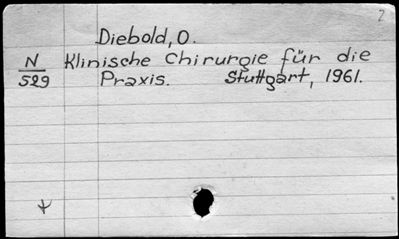 2
Diebold, O.
N Klinische Chirurgie für die
529 Praxis. Stuttgart, 1961.